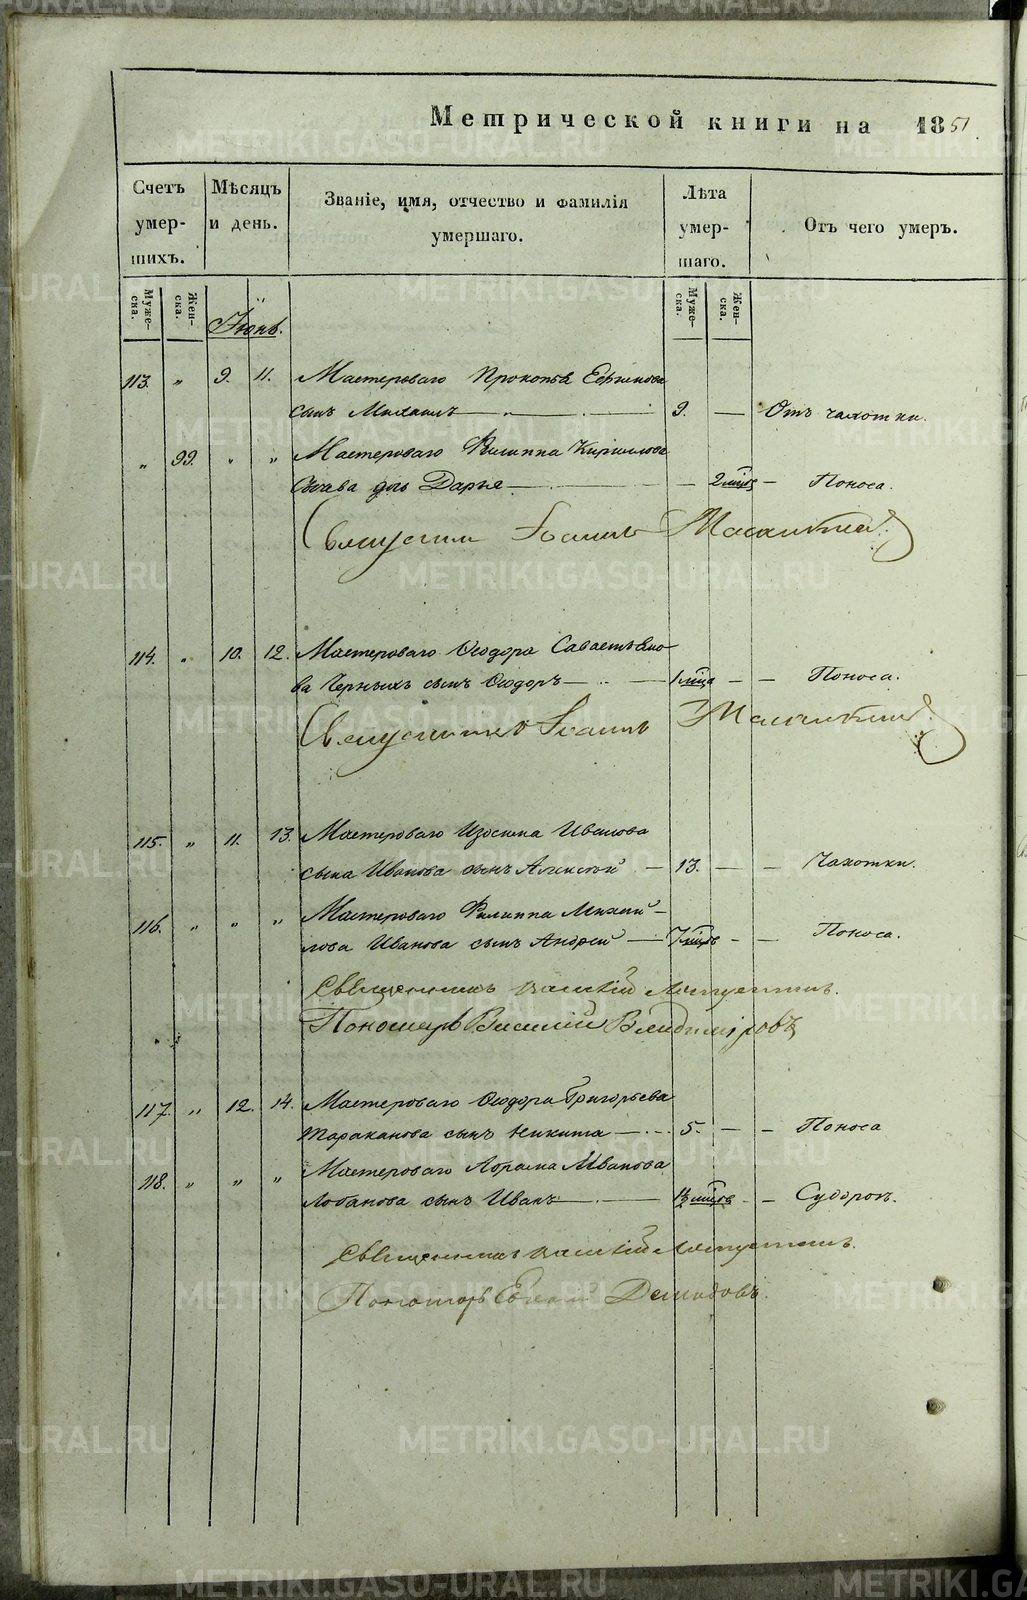 Метрической книги на 1851
Счетъ умер- шихъ.
Мѣсяцъ и день.
Званіе, имя, отчество и фамилія умершаго.
Лѣта умер- шаго.
Отъ чего умеръ.
Муже- ска.
Жен- ска.
Муже- ска.
Жен- ска.
Іюнь.
113. " 9. 11. Мастероваго Прокопья
сынъ Михаилъ — 9. — Отъ чахотки.
" 99. " " Мастероваго Филиппа Кириллова
дочь Дарья — — 2 мѣсяц — Поноса.
Іоаннъ
114. " 10. 12. Мастероваго Ѳеодора Савастьяно-
ва Черныхъ сынъ Ѳеодоръ — 1 мѣца — — Поноса.
Іоаннъ
115. " 11. 13. Мастероваго Изосима Иванова
сына Иванова сынъ Алексѣй — 13. — — Чахотки.
116. " " " Мастероваго Филиппа Михай-
лова Иванова сынъ Андрей — 7 мѣцъ — — Поноса.
Священникъ Василій
Пономарь Василій Владиміровъ
117. " 12. 14. Мастероваго Ѳеодора Григорьева
Тараканова сынъ Никита — 5. — — Поноса
118. " " " Мастероваго Абрама Иванова
Лобанова сынъ Иванъ — мѣцъ — — Судорок.
Священникъ Василій
Пономарь Демидовъ.
METRIKI.GASO-URAL.RU